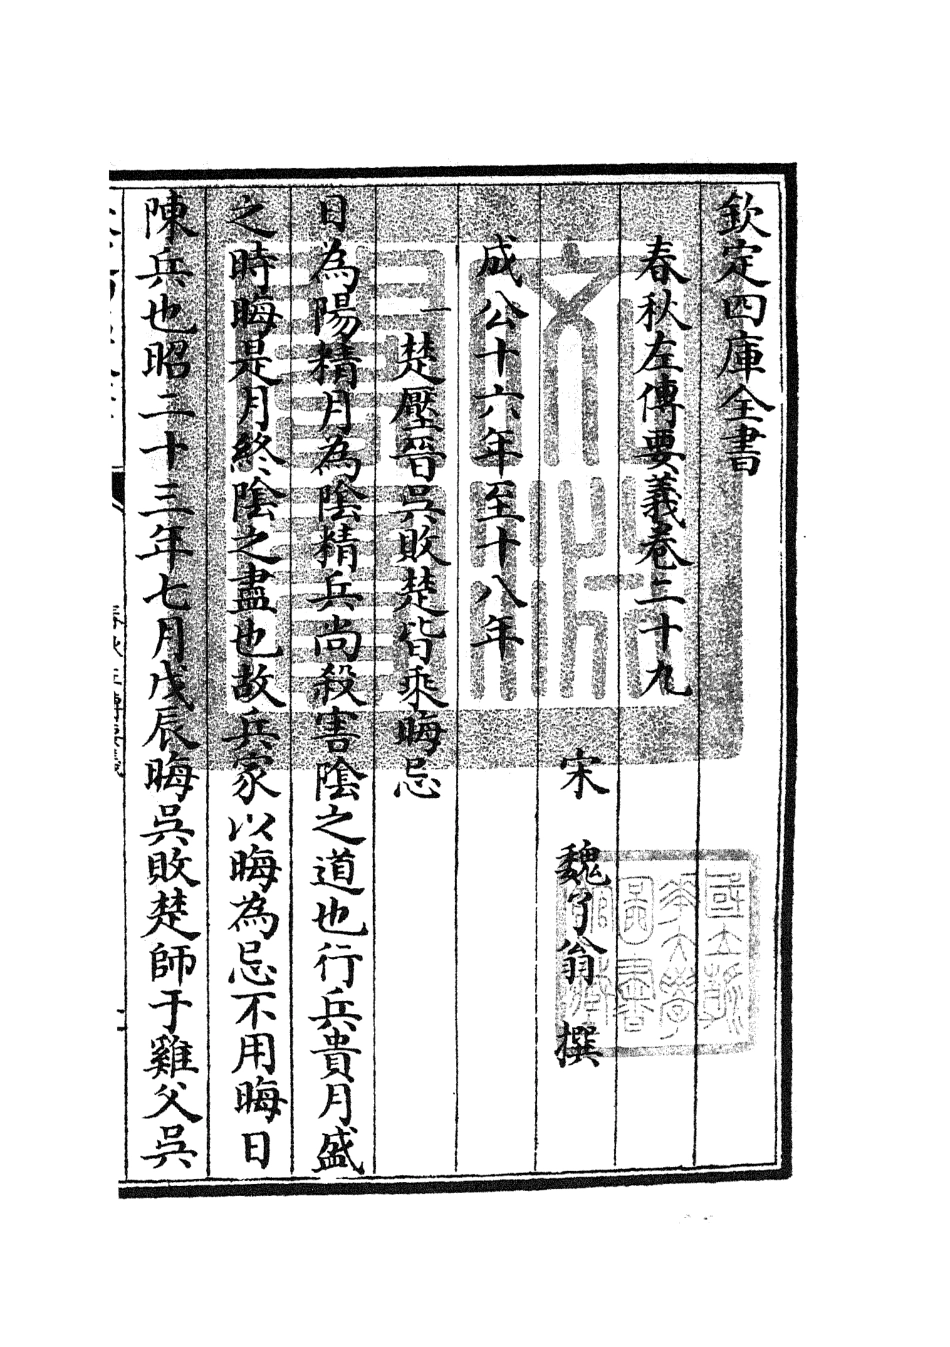 欽定四庫全書
春秋左傳要義卷二十九
宋 魏了翁 撰
成公十六年至十八年
一楚壓晉吳敗楚皆乘晦忌
日為陽精月為陰精兵尚殺害陰之道也行兵貴月盛
之時晦是月終陰之盡也故兵家以晦為忌不用晦日
陳兵也昭二十三年七月戊辰晦吳敗楚師于雞父吳
春秋左傳要義